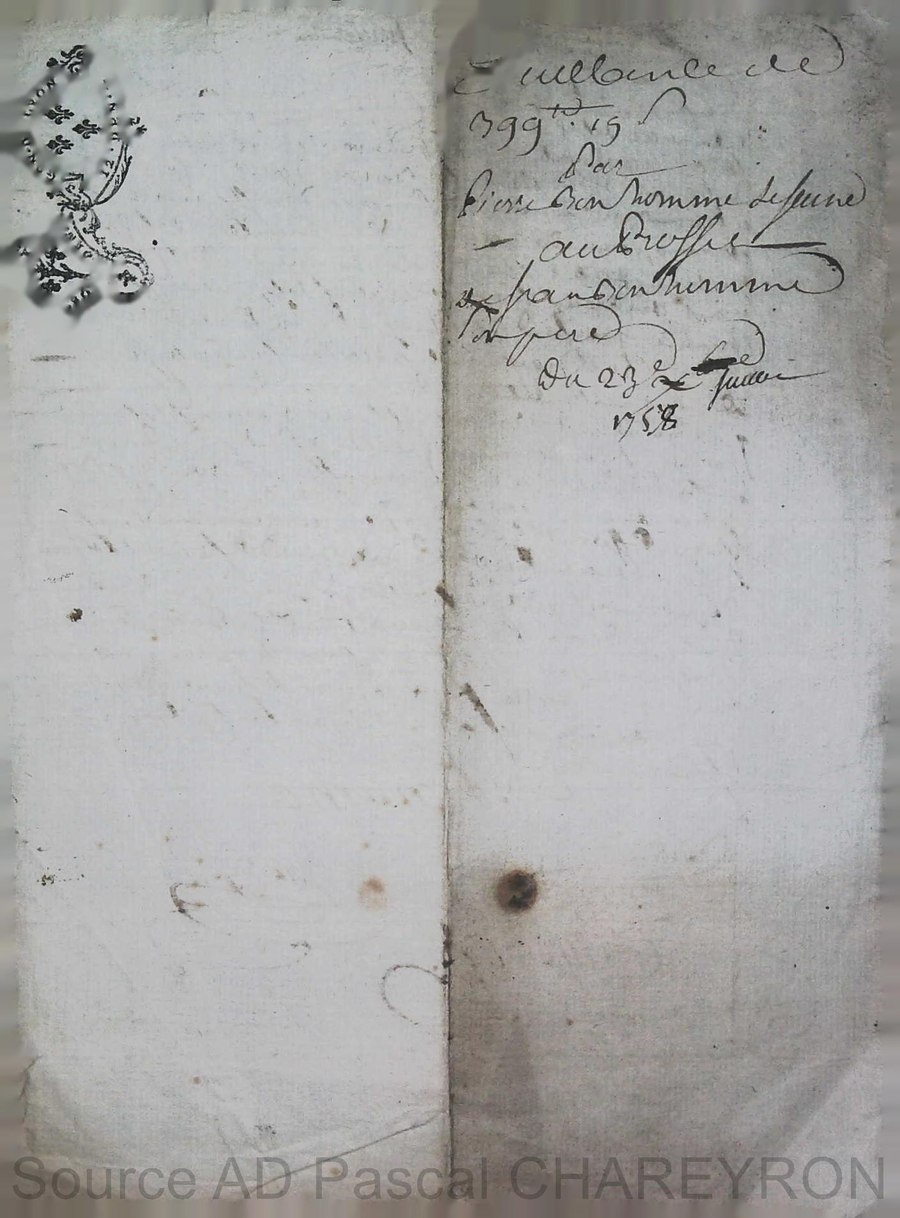 Quittance de
399 tt 19 s
Par
Pierre Bonhomme le Jeune
au Brossie
Jean Bonhomme
son pere
Du 23e Juin
1758
LYON
Source AD Pascal CHAREYRON